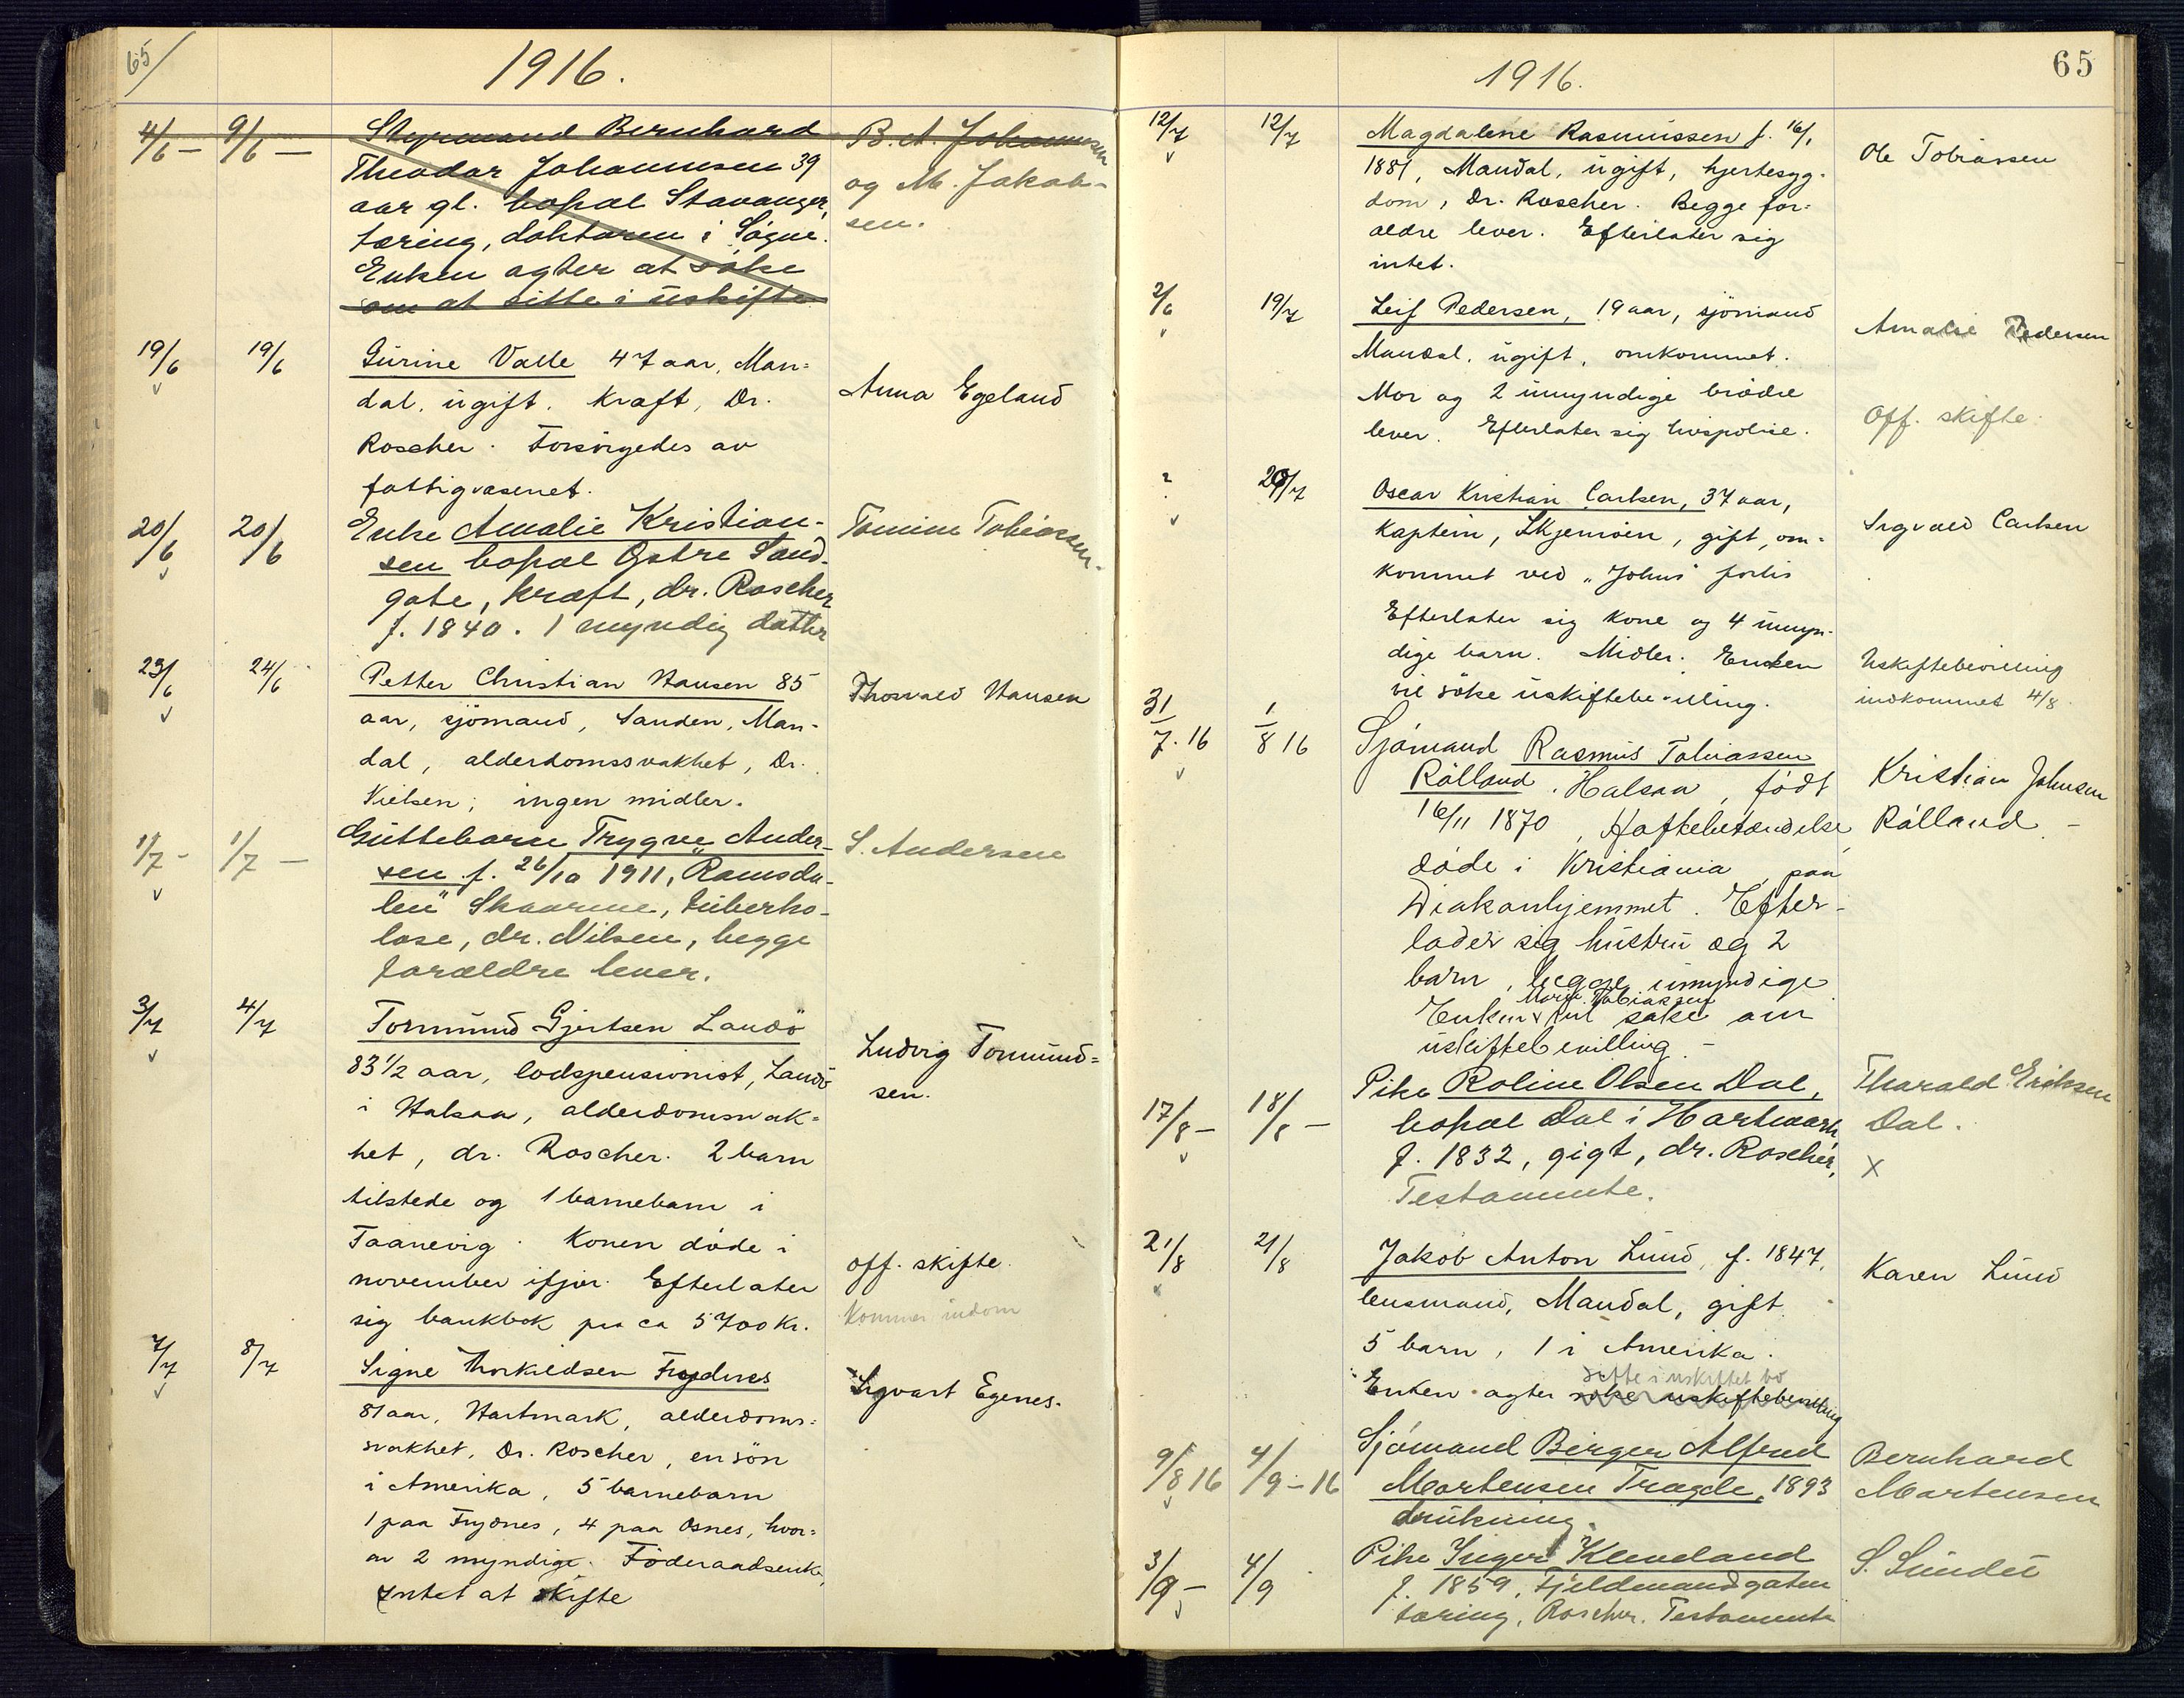 65/
1916.
4/6 — 9/6 — Styrmand Bernhard B. A. Johannessen
Theodor Johannesen 39 og M. Jakob-
aar gl. bopæl Stavanger, sen.
tæring, doktoren i Søgne.
Enken agter at søke
om at sitte i uskifte
19/6 19/6 Gurine Valle 47 aar, Man=
dal, ugift. Kræft, Dr. Anna Egeland
Roscher. Forsørgedes av
fattigvæsenet.
20/6 20/6 Enke Amalie Kristian- Tomine Tobiassen.
sen bopæl Østre Sand-
gate, kræft, dr. Roscher
f. 1840. 1 myndig datter
23/6 24/6 Petter Christian Hansen 85 Thorvald Hansen
aar, sjømand, Sanden, Man-
dal, alderdomssvakhet, Dr.
Nielsen, ingen midler.
1/7 - 1/7 — Guttebarn Trygve Ander- S. Andersen
sen f. 26/10 1911, "Ramsda-
len" Skaarene, tuberko-
lose, dr. Nilsen, begge
forældre lever.
3/7 4/7 Tormund Gjertsen Landø
83 1/2 aar, lodspensionist, Landø Ludvig Tormund=
i Halsaa, alderdomsvak= sen.
het, dr. Roscher. 2 barn
tilstede og 1 barnebarn i
Taanevig. Konen døde i
november ifjor. Efterlater off. skifte.
sig bankbok paa ca 5700 kr. kommer indom
7/7 8/7 Signe Thorkildsen Frydnes Sigvart Egenes.
81 aar, Hartmark, alderdoms=
svakhet, Dr. Roscher, en søn
i Amerika, 5 barnebarn
1 paa Frydnes, 4 paa Osnes, hvor=
av 2 myndige. Føderaadsenke,
Intet at skifte
65
1916.
12/7 12/7 Magdalene Rasmussen f. 16/1 Ole Tobiassen
1881, Mandal, ugift, hjertesyg-
dom, Dr. Roscher. Begge for=
ældre lever. Efterlater sig
intet.
2/6 19/7 Leif Pedersen, 19 aar, sjømand Amalie Pedersen
Mandal, ugift, omkommet.
Mor og 2 umyndige brødre Off. skifte.
lever. Efterlater sig livspolise.
? 20/7 Oscar Kristian Carlsen, 37 aar, Sigvald Carlsen
kaptein, Skjernøen, gift, om-
kommet ved "Johns" forlis
Efterlater sig kone og 4 umyn-
dige barn. Midler. Enken Uskiftebevilling
vil søke uskiftebevilling. indkommet 4/8
31/7. 16 1/8 16 Sjømand Rasmus Tobiassen Kristian Johnsen
Rålland. Halsaa, født Rålland —
16/11 1870, Hoftebetændelse
døde i Kristiania, paa
Diakonhjemmet. Efter-
lader sig hustru og 2
barn, begge umyndige
Marie Tobiassen
Enken vil søke om
uskiftebevilling —
17/8 — 18/8 — Pike Roline Olsen Dal, Tharald Eriksen
bopæl Dal i Hartmark, Dal.
f. 1832, gigt, dr. Roscher, X
Testamente.
21/8 21/8 Jakob Anton Lund, f. 1847, Karen Lund
lensmand, Mandal, gift
5 barn, 1 i Amerika.
sitte i uskiftet bo
Enken agter søke uskiftebevilling
9/8 16 4/9 - 16 Sjømand Birger Alfred Bernhard
Mortensen Tregde, 1893 Mortensen
drukning.
3/9 — 4/9 Pike Inger Kleveland S. Sundet
f. 1859, Fjeldmandgaten
tæring, Roscher. Testamente